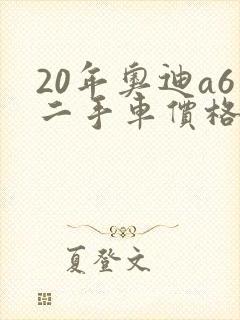 20年奧迪a6
二手車價格
夏登文